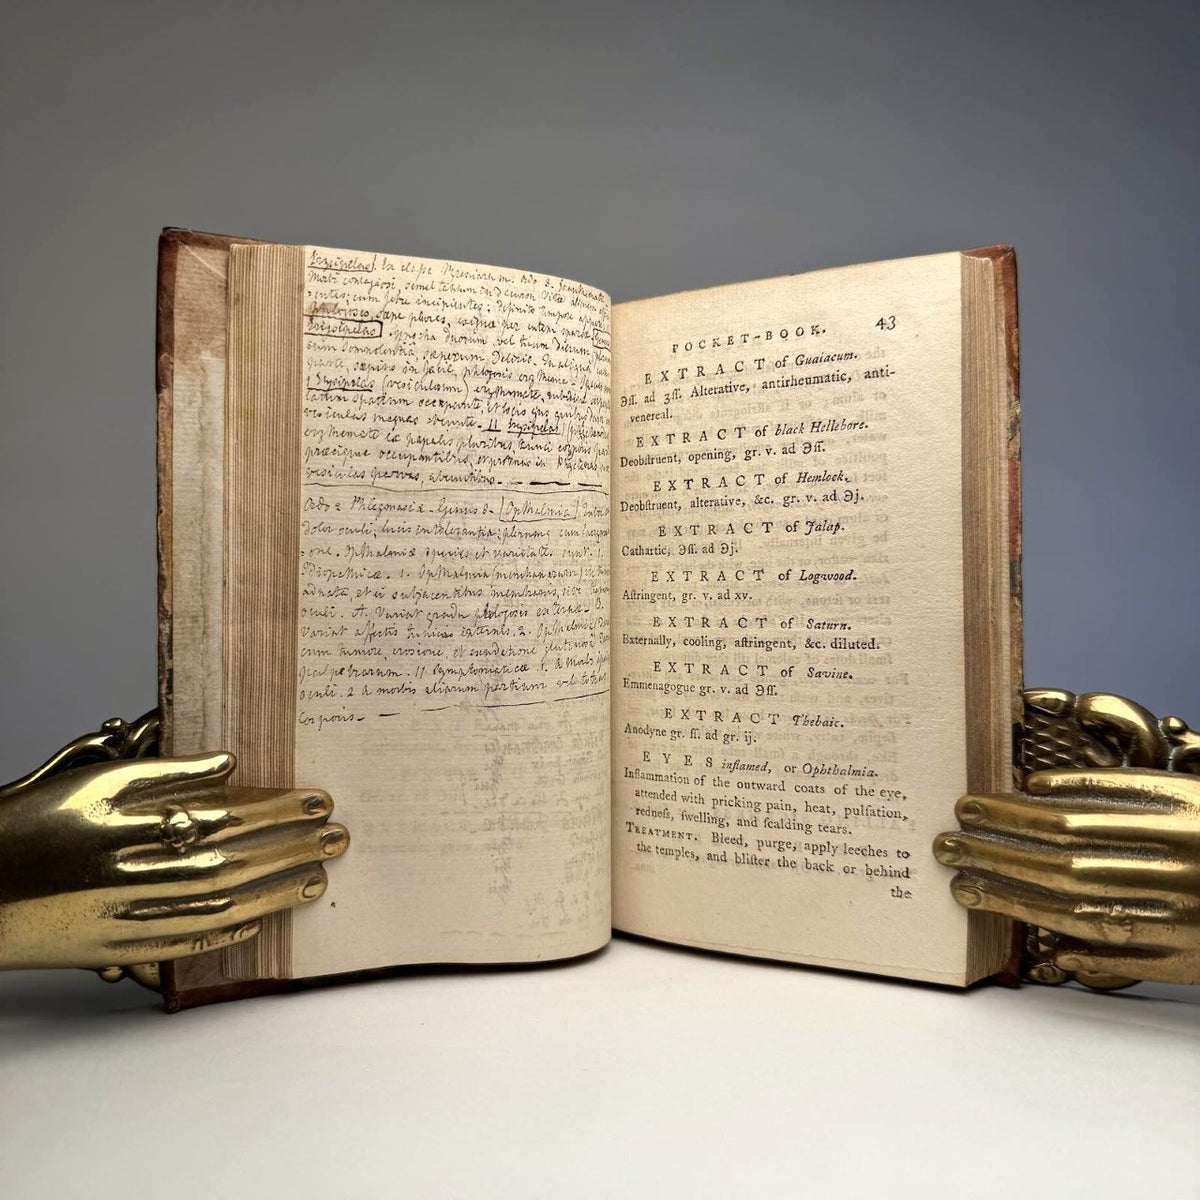 Erysipelas. In classe Pyrexiarum. Ordo 3.
Morbi contagiosi, semel tantum in decursu vitæ aliquem
cum febre incipientes; definito tempore
phlogoseo, sæpe plures, exiguæ per cutem sparsæ
Erysipelas. Synocha duorum vel trium dierum
cum somnolentia, sæpe cum delirio. In aliqua
parte, sæpius in facie, phlogosis erythema
Erysipelas (vesiculosum) erythemate
latum spatium occupante, et locis
vesiculas magnas abeunte. 11 Erysipelas
erythemate ex papulis pluribus, trunci corporis
præcipue occupantibus, et protinus in
vesiculas parvas, abeuntibus.
Ordo 2 Phlegmasiæ. Genus 8. Ophthalmia
dolor oculi; lucis intolerantia; plerumq cum
one. Ophthalmiæ species et varietates sunt. 1.
Idiopathicæ. 1. Ophthalmia (membranarum) in
adnata, et ei subjacentibus membranis, sive
oculi. A. Variat gradu phlogosis externæ. B.
Variat affectis tunicis internis. 2. Ophthalmia
cum tumore, erosione, et exudatione glutinosa
palpebrarum. 11 Symptomaticæ 1. A morbo
oculi. 2 A morbis aliarum partium vel totius
Corporis
POCKET-BOOK. 43
EXTRACT of Guaiacum.
℈ſſ. ad ʒſſ. Alterative, antirheumatic, anti-
venereal.
EXTRACT of black Hellebore.
Deobſtruent, opening, gr. v. ad ℈ſſ.
EXTRACT of Hemlock.
Deobſtruent, alterative, &c. gr. v. ad ℈j.
EXTRACT of Jalap.
Cathartic, ℈ſſ. ad ℈j.
EXTRACT of Logwood.
Aſtringent, gr. v. ad xv.
EXTRACT of Saturn.
Externally, cooling, aſtringent, &c. diluted.
EXTRACT of Savine.
Emmenagogue gr. v. ad ℈ſſ.
EXTRACT Thebaic.
Anodyne gr. ſſ. ad gr. ij.
EYES inflamed, or Ophthalmia.
Inflammation of the outward coats of the eye,
attended with pricking pain, heat, pulſation,
redneſs, ſwelling, and ſcalding tears.
TREATMENT. Bleed, purge, apply leeches to
the temples, and bliſter the back or behind
the